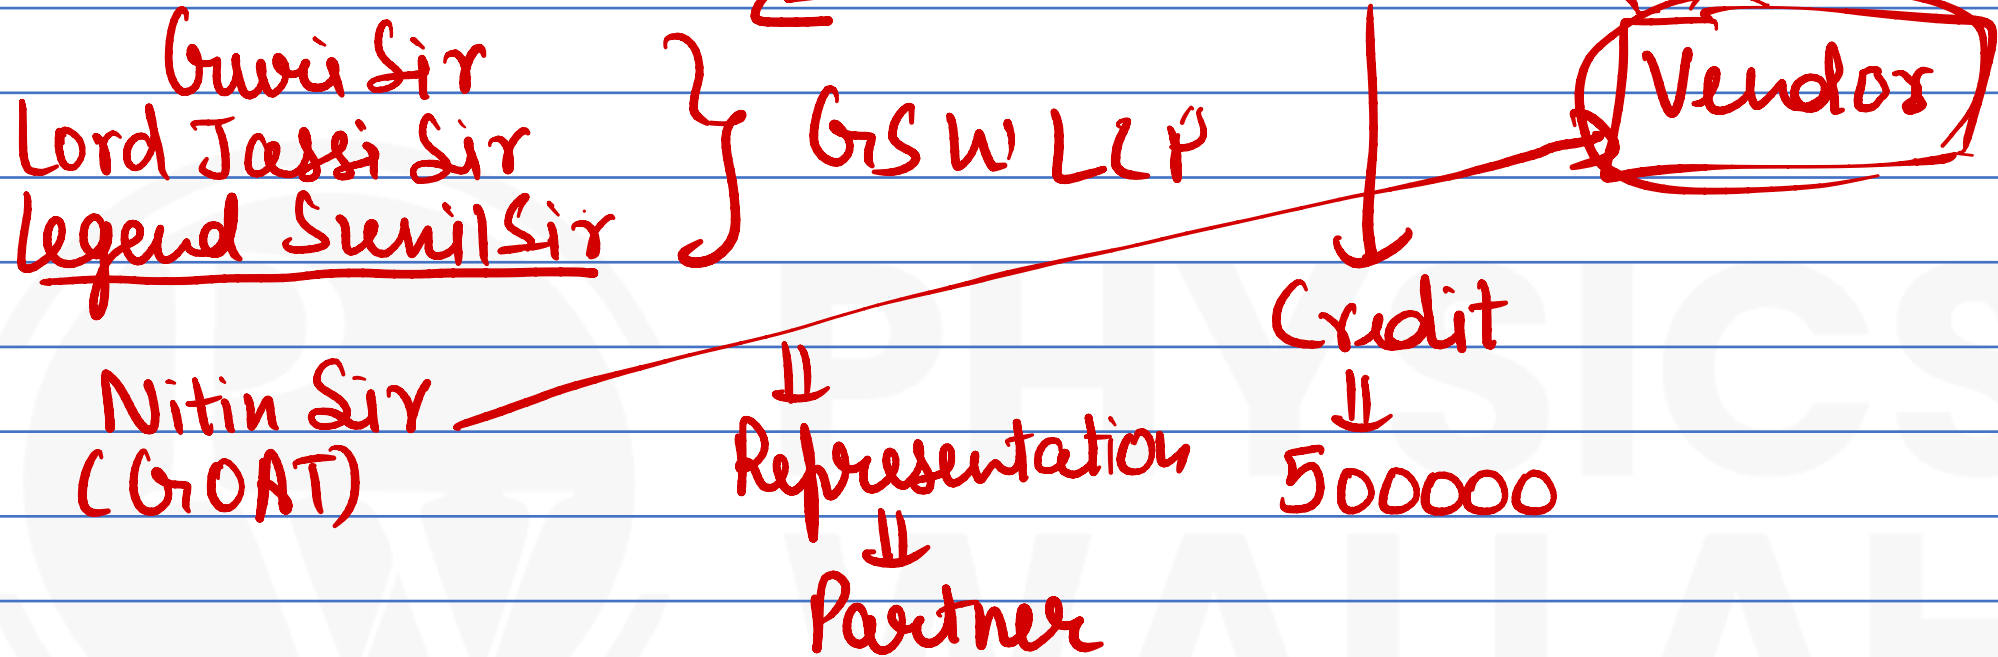 Guri Sir
Lord Jassi Sir
Legend Sunil Sir
GSW LLP
Vendor
Credit
500000
Nitin Sir
(GOAT)
Representation
Partner
PHYSICS
WALLAH